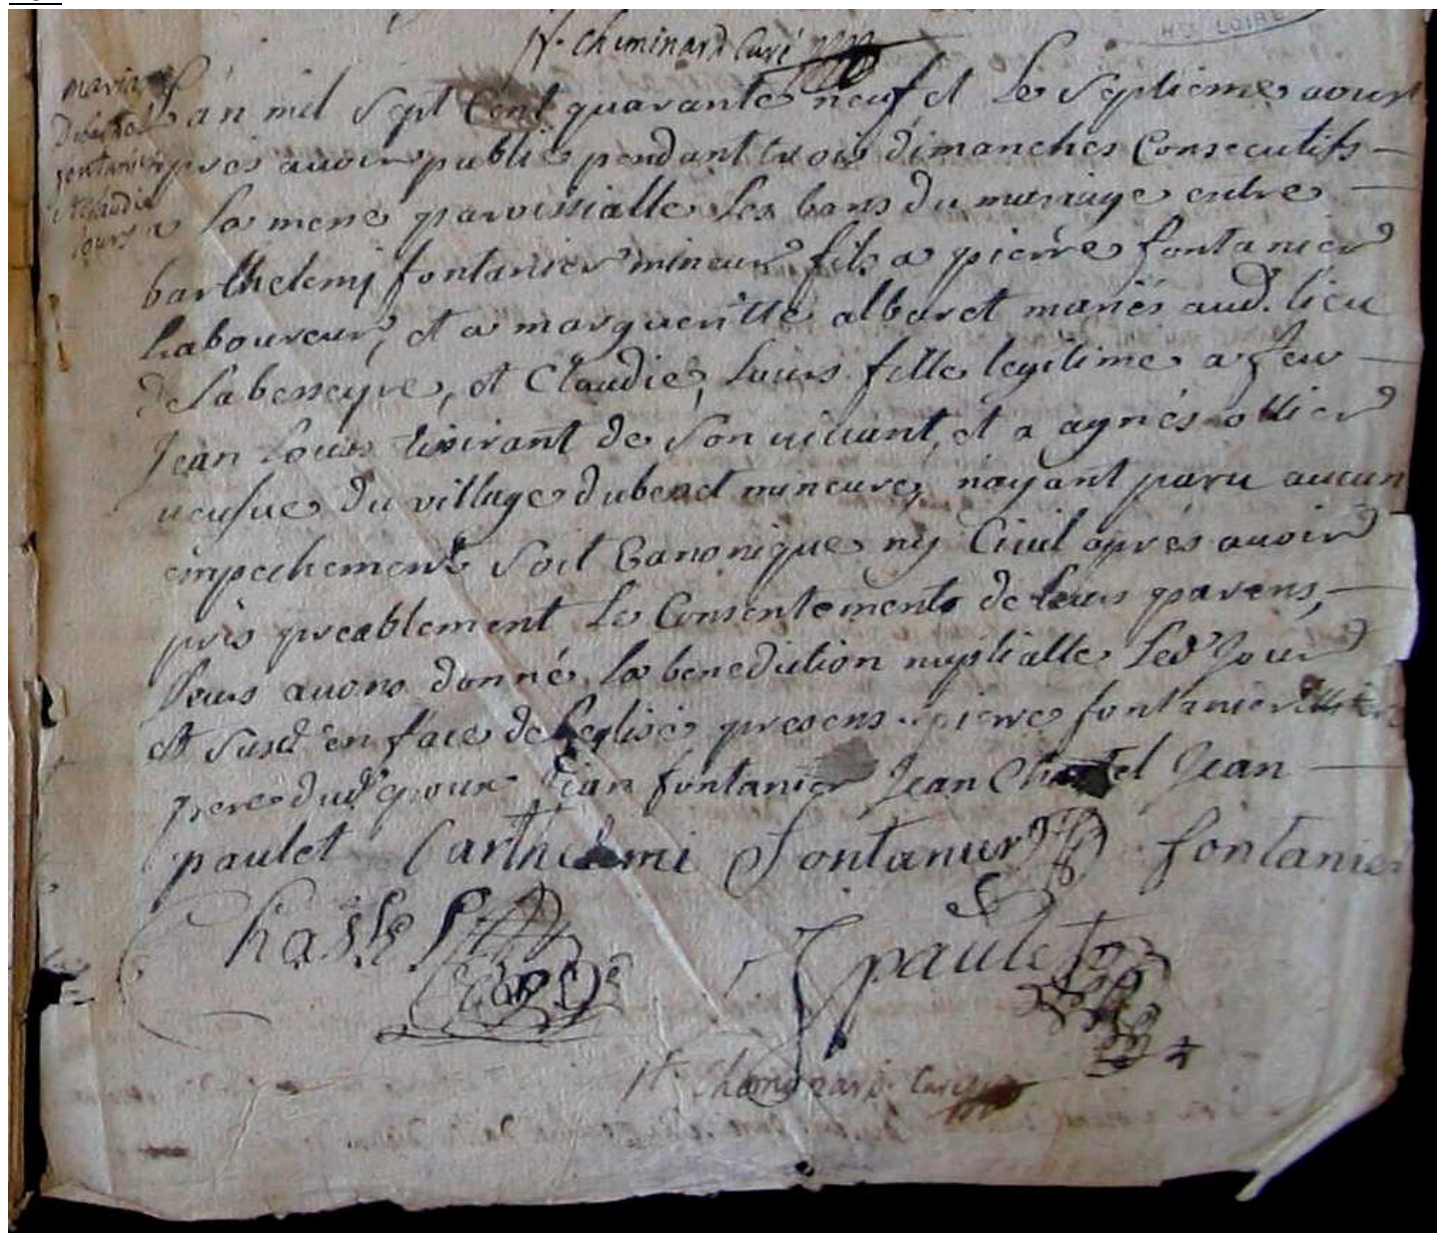 Cheminard Curé
Hte LOIRE
mariage
fontanier
et Claudie
Lours
L'an mil sept Cent quarante neuf et le septieme aout
apres avoir publié pendant trois dimanches Consecutifs
a la mene paroissialle les bans du mariage entre
barthelemj fontanier mineur fils a pierre fontanier
laboureur, et a margueritte albaret mariés aud. lieu
de labesseyre, et Claudie, Lours fille legitime a feu
Jean Lours de son vivant, et a agnés ollier
veufve du village dubenet mineure, nayant paru aucun
empechement soit Canonique ny Civil aprés avoir
pris preablement le Consentement de leurs parens,
Nous avons donné la benediction nuptialle led Jour
et susd en face de leglise presens pierre fontanier
pere dud epoux Jean fontanier Jean Chastel Jean
paulet barthelemi fontanier fontanier
Chastel paulet
Cheminard Curé